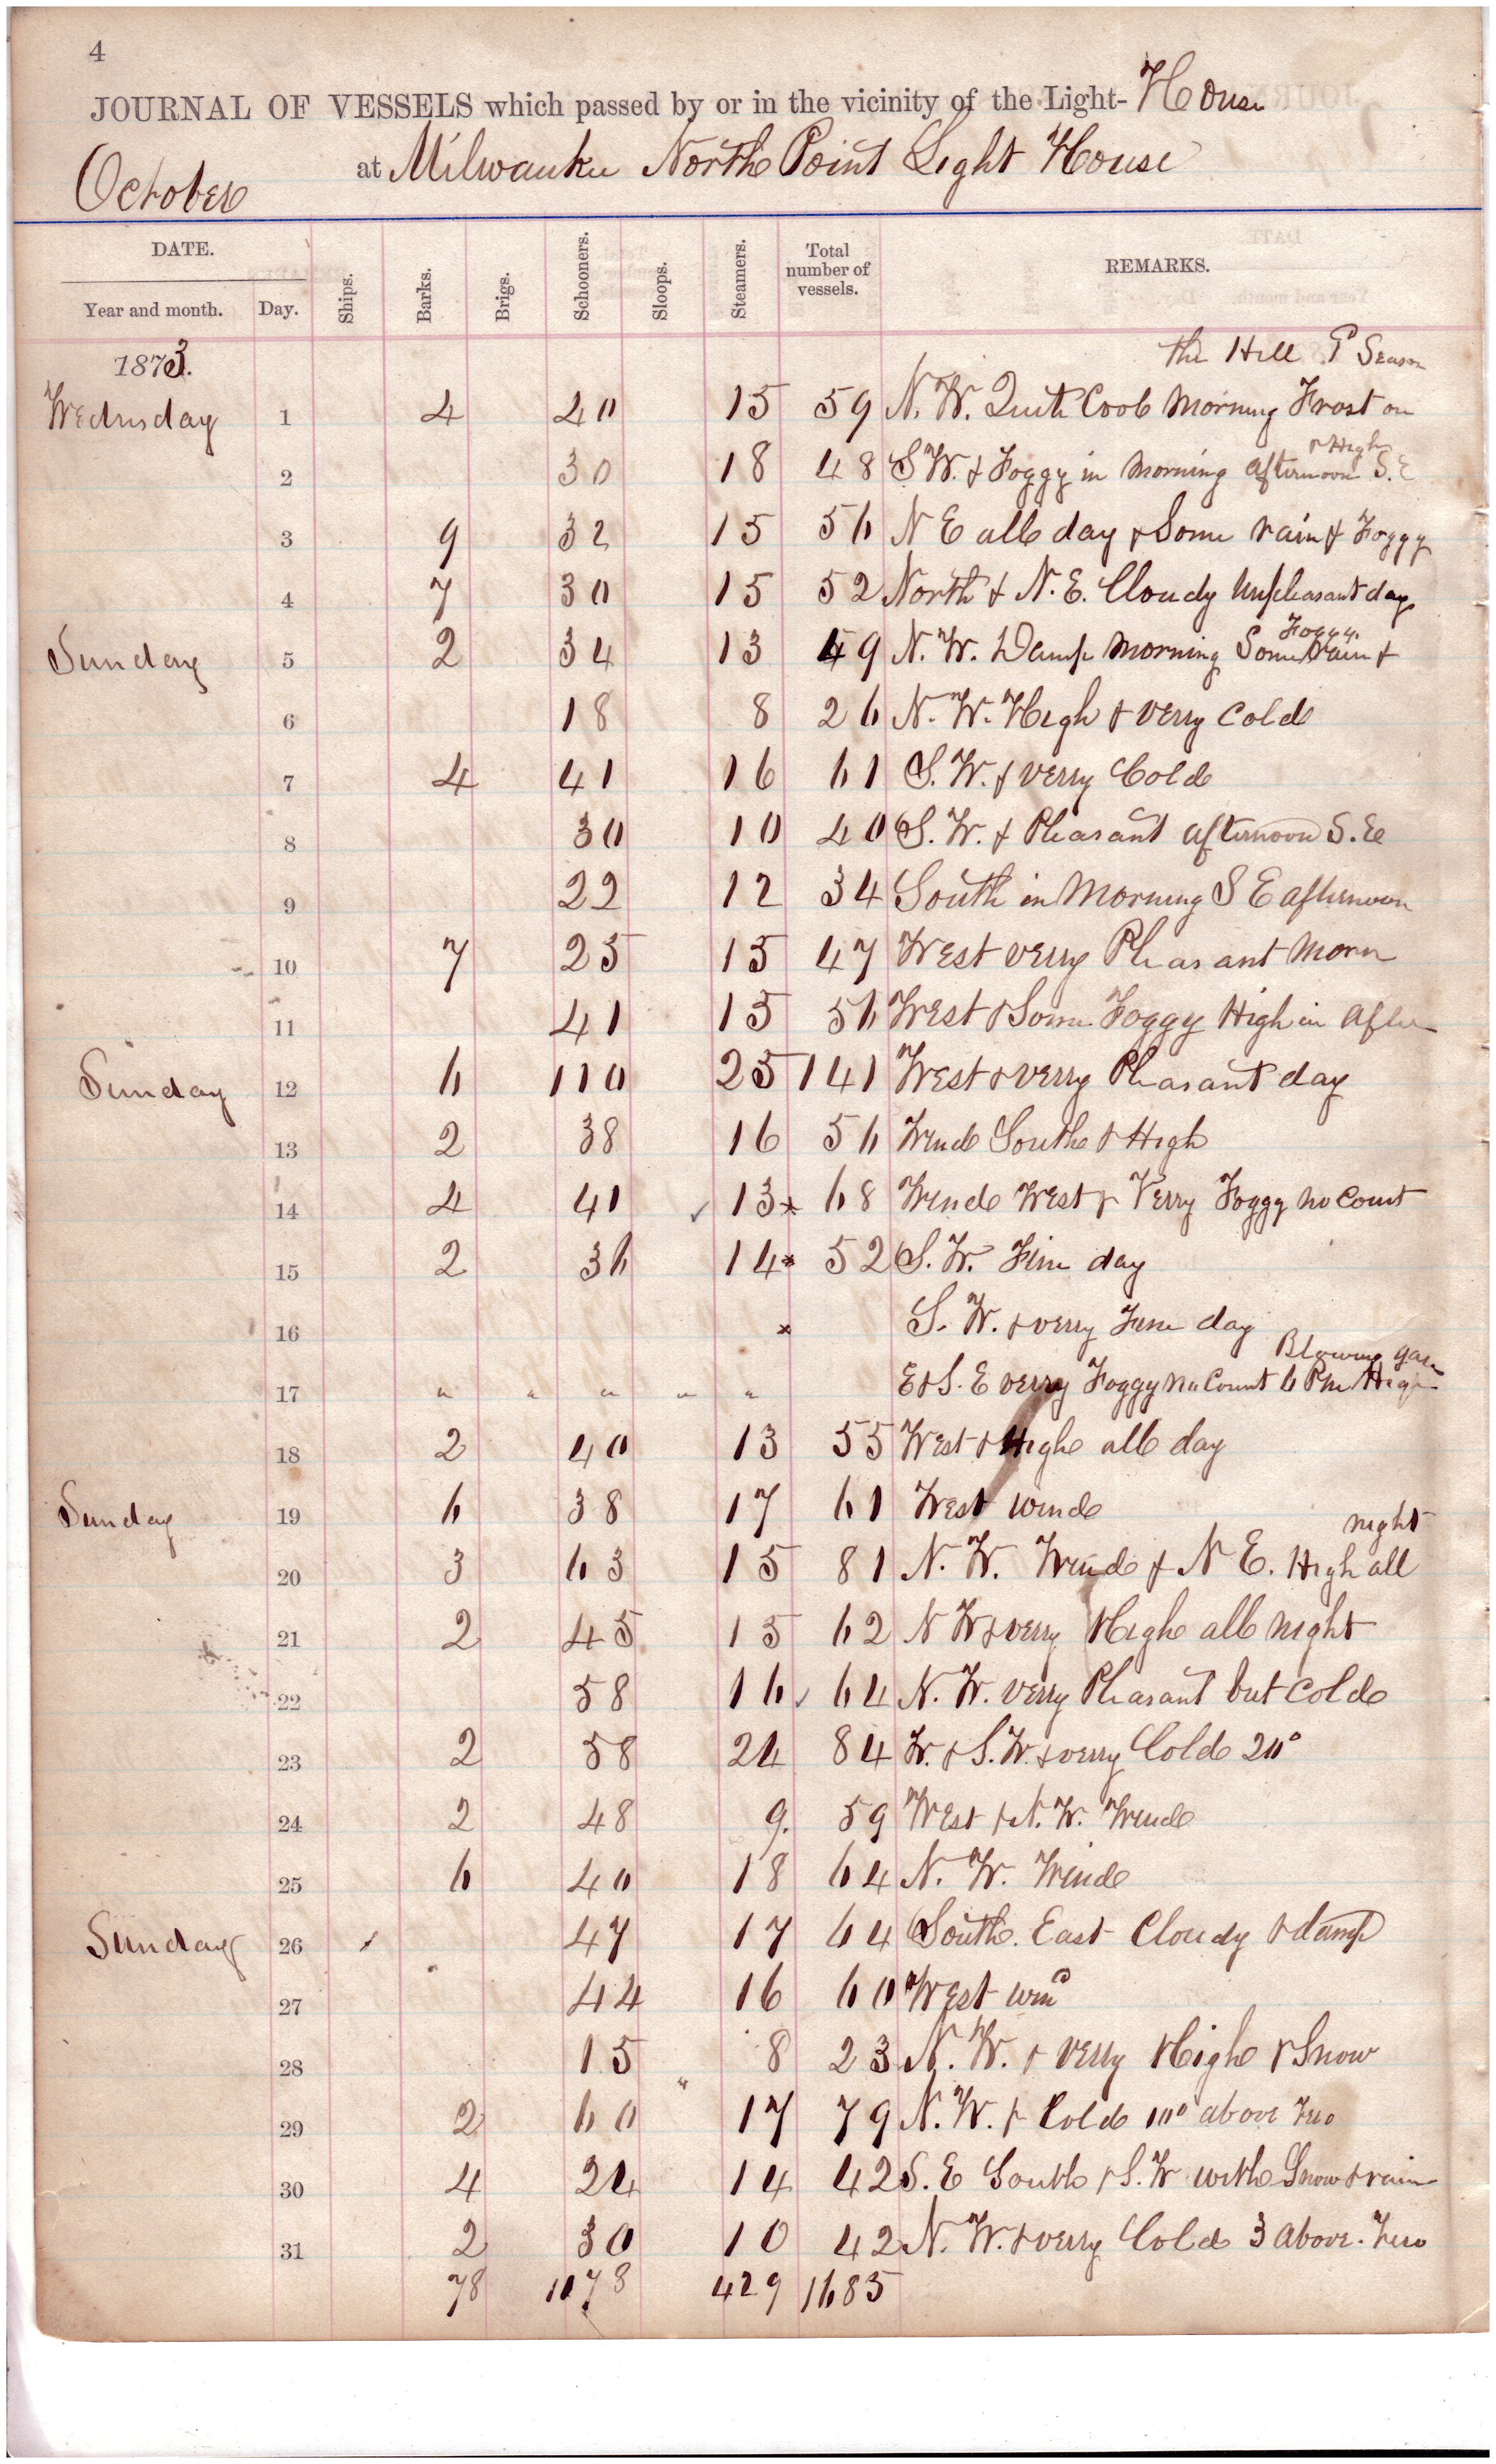 4
JOURNAL OF VESSELS which passed by or in the vicinity of the Light-House
at Milwaukee North Point Light House
October
DATE. Ships. Barks. Brigs. Schooners. Sloops. Steamers. Total number of vessels. REMARKS.
Year and month. Day.
1873. the Hill Season
Wednesday 1 4 40 15 59 N. W. Quite Cool Morning Frost on
& High
2 30 18 48 S W. & Foggy in Morning afternoon S. E
3 9 32 15 56 N E all day & Some rain & Foggy
4 7 30 15 52 North & N. E. Cloudy unpleasant day
Foggy
Sunday 5 2 34 13 49 N. W. Damp Morning Some rain &
6 18 8 26 N. W. High & verry Cold
7 4 41 16 61 S. W. & verry Cold
8 30 10 40 S. W. & Pleasant afternoon S. E
9 22 12 34 South in Morning S E afternoon
10 7 25 15 47 West verry Pleasant Morn
11 41 15 56 West & Some Foggy High in After
Sunday 12 6 110 25 141 West & verry Pleasant day
13 2 38 16 56 Wind South & High
14 4 41 ✓ 13 * 68 Wind West & Verry Foggy no Count
15 2 36 14 * 52 S. W. Fine day
16 * S. W. & verry Fine day
Blowing gale
17 " " " " " E & S. E verry Foggy no Count 6 Pm High
18 2 40 13 55 West & High all day
Sunday 19 6 38 17 61 West wind
night
20 3 63 15 81 N. W. Wind & N E. High all
21 2 45 15 62 N W & verry High all night
22 58 16 ✓ 64 N. W. verry Pleasant but Cold
23 2 58 24 84 W. & S. W. & verry Cold 20°
24 2 48 9. 59 West & N. W. Wind
25 6 40 18 64 N. W. Wind
Sunday 26 47 17 64 South. East Cloudy & damp
27 44 16 60 West wind
28 15 8 23 N. W. & verry High & Snow
29 2 60 17 79 N. W. & Cold 10° above Zero
30 4 24 14 42 S. E South & S. W with Snow & rain
31 2 30 10 42 N. W. & verry Cold 3 above. Zero
78 1178 429 1685